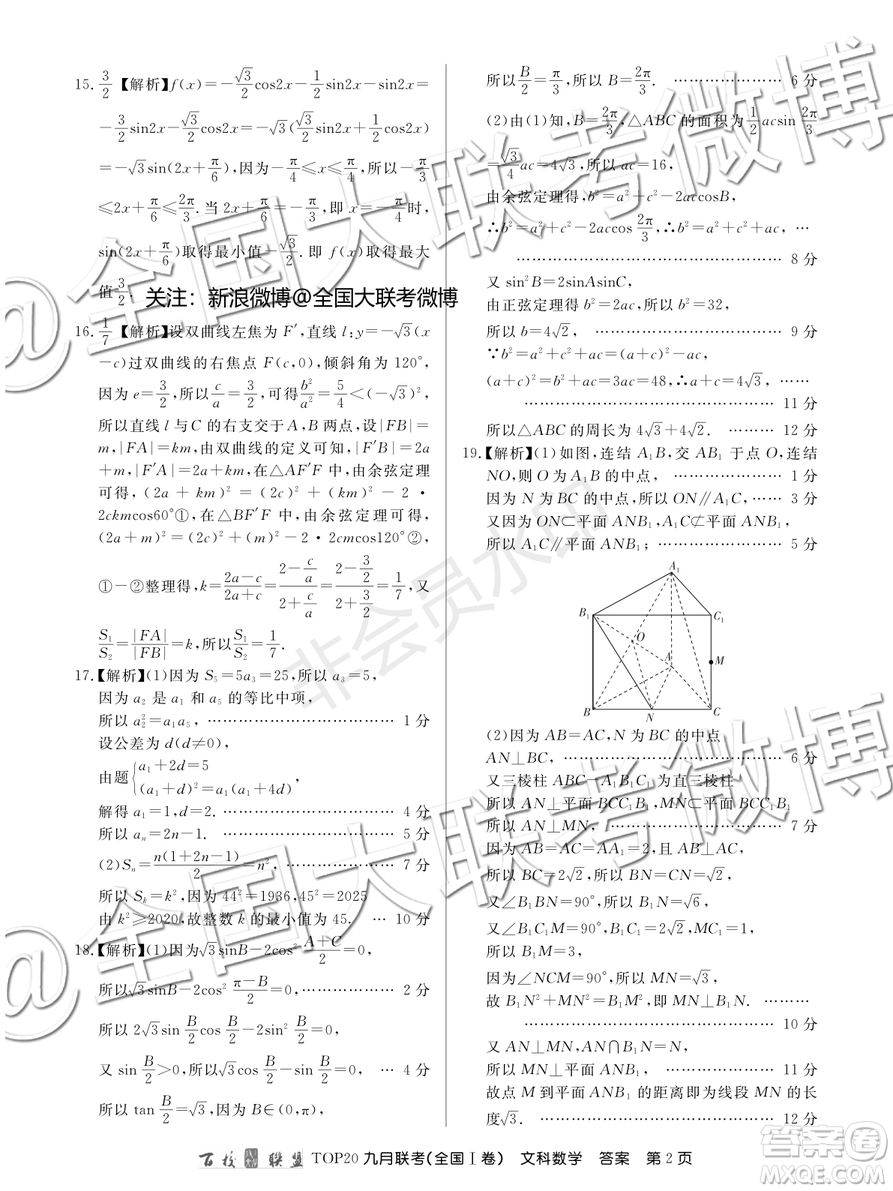 15. 3/2 【解析】f(x)=-√3/2cos2x-1/2sin2x-sin2x=
-3/2sin2x-√3/2cos2x=-√3(√3/2sin2x+1/2cos2x)
=-√3sin(2x+π/6),因为-π/4≤x≤π/4,所以-π/3
≤2x+π/6≤2π/3.当2x+π/6=-π/3,即x=-π/4时,
sin(2x+π/6)取得最小值-√3/2.即f(x)取得最大
值3/2.
关注：新浪微博@全国大联考微博
16. 1/7 【解析】设双曲线左焦为F′,直线l:y=-√3(x
-c)过双曲线的右焦点F(c,0),倾斜角为120°,
因为e=3/2,所以c/a=3/2,可得b²/a²=5/4<(-√3)²,
所以直线l与C的右支交于A,B两点,设|FB|=
m,|FA|=km,由双曲线的定义可知,|F′B|=2a
+m,|F′A|=2a+km,在△AF′F中,由余弦定理
可得,(2a+km)²=(km)²+(2c)²-2·
2ckmcos60°①,在△BF′F中,由余弦定理可得,
(2a+m)²=(2c)²+m²-2·2cmcos120°②,
①-②整理得,k=(2a-c)/(2a+c)=(2-c/a)/(2+c/a)=(2-3/2)/(2+3/2)=1/7,又
S₁/S₂=|FA|/|FB|=k,所以S₁/S₂=1/7.
17.【解析】(1)因为S₅=5a₃=25,所以a₃=5,
因为a₂是a₁和a₅的等比中项,
所以a₂²=a₁a₅, ………… 1分
设公差为d(d≠0),
由题{a₁+2d=5
(a₁+d)²=a₁(a₁+4d)
解得a₁=1,d=2. ………… 4分
所以aₙ=2n-1. ………… 5分
(2)Sₙ=n(1+2n-1)/2=n², ………… 7分
所以Sₖ=k²,因为44²=1936,45²=2025
由k²≥2020,故整数k的最小值为45. … 10分
18.【解析】(1)因为√3sinB-2cos²(A+C)/2=0,
所以√3sinB-2cos²(π-B)/2=0, ………… 2分
所以2√3sin B/2 cos B/2-2sin² B/2=0,
又sin B/2>0,所以√3cos B/2-sin B/2=0, … 4分
所以tan B/2=√3,因为B∈(0,π),
所以B/2=π/3,所以B=2π/3. ………… 6分
(2)由(1)知,B=2π/3,△ABC的面积为1/2acsin2π/3
=√3/4ac=4√3,所以ac=16,
由余弦定理得,b²=a²+c²-2accosB,
∴b²=a²+c²-2accos2π/3,∴b²=a²+c²+ac, …
………… 8分
又sin²B=2sinAsinC,
由正弦定理得b²=2ac,所以b²=32,
所以b=4√2, ………… 9分
∵b²=a²+c²+ac=2ac,
(a+c)²=b²+ac=3ac=48,∴a+c=4√3,
………… 11分
所以△ABC的周长为4√3+4√2. ……… 12分
19.【解析】(1)如图,连结A₁B,交AB₁于点O,连结
NO,则O为A₁B的中点, ………… 1分
因为N为BC的中点,所以ON∥A₁C, …… 3分
又因为ON⊂平面ANB₁,A₁C⊄平面ANB₁,
所以A₁C∥平面ANB₁; ………… 5分
A₁
B₁
C₁
O
A
M
B
N
C
(2)因为AB=AC,N为BC的中点
AN⊥BC, ………… 6分
又三棱柱ABC-A₁B₁C₁为直三棱柱
所以AN⊥平面BCC₁B₁,MN⊂平面BCC₁B₁
所以AN⊥MN, ………… 7分
因为AB=AC=AA₁=2,且AB⊥AC,
所以BC=2√2,所以BN=CN=√2,
又∠B₁BN=90°,所以B₁N=√6,
又∠B₁C₁M=90°,B₁C₁=2√2,MC₁=1,
所以B₁M=3,
因为∠NCM=90°,所以MN=√3,
故B₁N²+MN²=B₁M²,即MN⊥B₁N. ………
………… 10分
又AN⊥MN,AN∩B₁N,
所以MN⊥平面ANB₁, ………… 11分
故点M到平面ANB₁的距离即为线段MN的长
度√3. ………… 12分
百校联盟 TOP20九月联考(全国Ⅰ卷) 文科数学 答案 第2页
@全国大联考微博
@全国大联考微博
非会员水印
答案圈
MXQE.COM